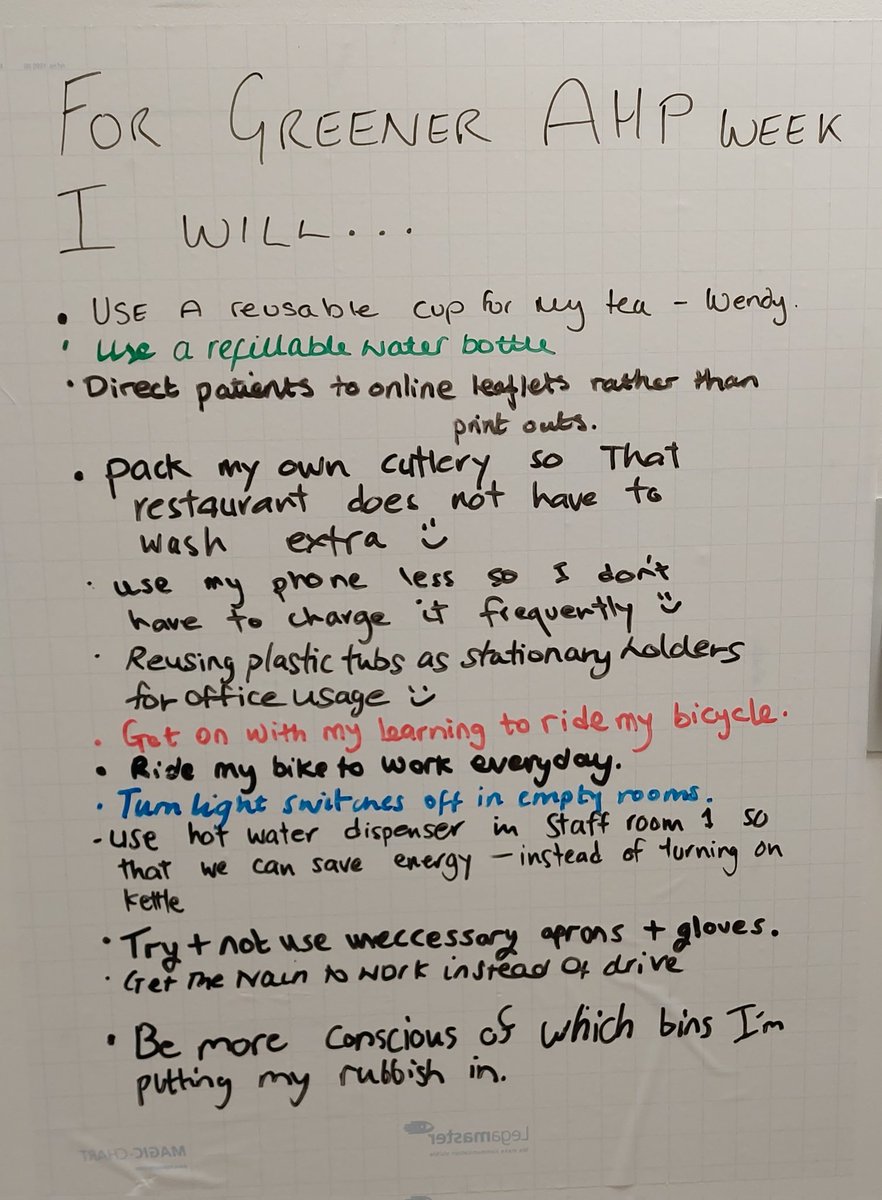 FOR GREENER AHP WEEK
I WILL...
• USE A reusable cup for my tea – Wendy.
• Use a refillable water bottle
• Direct patients to online leaflets rather than
print outs.
• pack my own cutlery so That
restaurant does not have to
wash extra :)
• use my phone less so I don't
have to charge it frequently :)
• Reusing plastic tubs as stationary holders
for office usage :)
• Get on with my learning to ride my bicycle.
• Ride my bike to work everyday.
• Turn light switches off in empty rooms.
- use hot water dispenser in Staff room 1 so
that we can save energy – instead of turning on
kettle
• Try + not use uneccessary aprons + gloves.
• Get The train to work instead of drive
• Be more conscious of which bins I'm
putting my rubbish in.
Legamaster
MAGIC-CHART